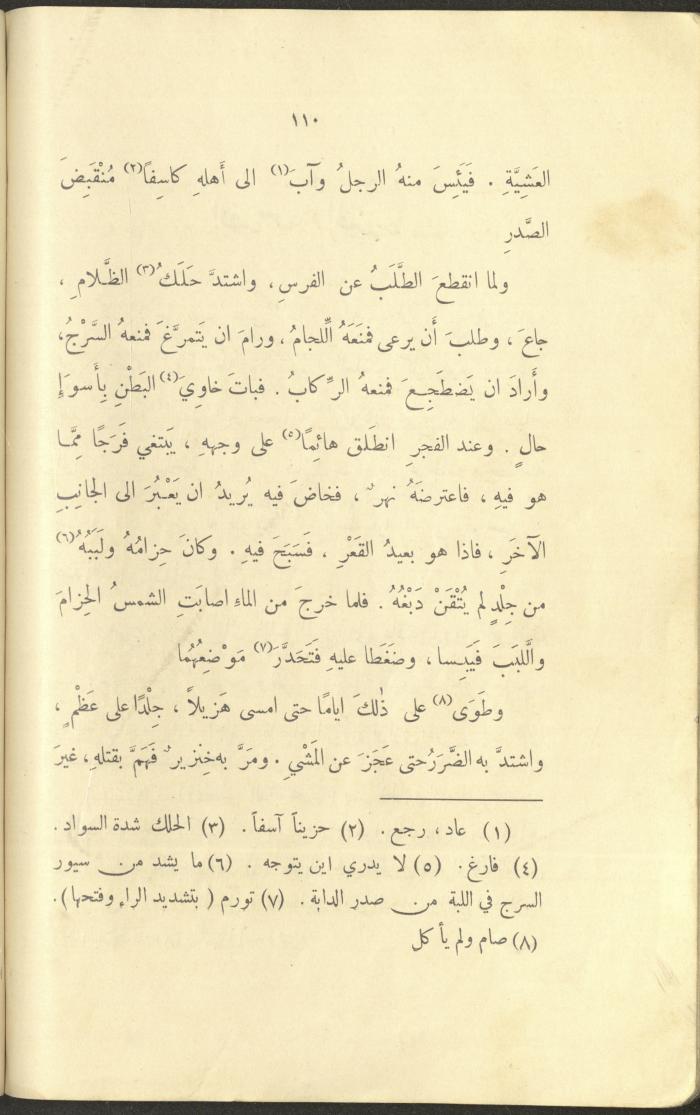 ١١٠
العَشِيَّةِ . فَيَئِسَ منهُ الرجلُ وآبَ(١) الى أَهلهِ كاسِفاً(٢) مُنْقَبِضَ
الصَّدرِ
ولما انقطعَ الطَّلَبُ عن الفرسِ ، واشتدَّ حَلَكُ(٣) الظَّلامِ ،
جاعَ ، وطلبَ أَن يرعى فمَنَعَهُ الِّلجامُ ، ورامَ ان يَتمرَّغَ فمنعهُ السَّرْجُ ،
وأَرادَ ان يَضطَجِعَ فمنعهُ الرِّكابُ . فباتَ خاوِيَ(٤) البَطْنِ بِأَسوَإِ
حالٍ . وعند الفجرِ انطَلق هائِمًا(٥) على وجههِ ، يَبتغي فَرَجًا مِمَّا
هو فيهِ ، فاعترضهُ نهرٌ ، فخاضَ فيه يُريدُ ان يَعْبُرَ الى الجانِبِ
الآخَرِ ، فاذا هو بعيدُ القَعْرِ ، فَسَبَحَ فيهِ . وكانَ حِزامُهُ ولَبَبُهُ(٦)
من جِلْدٍ لم يُتْقَنْ دَبْغُهُ . فلما خرجَ من الماءِ اصابَتِ الشمسُ الحِزامَ
والَّلبَبَ فَيَبِسا ، وضَغَطا عليهِ فَتَحَدَّرَ(٧) مَوْضِعُهُما
وطَوَى(٨) على ذٰلكَ ايامًا حتى امسى هَزيلاً ، جِلْدًا على عَظْمٍ ،
واشتدَّ به الضَّرَرُ حتى عَجَزَ عن المَشْيِ . ومَرَّ به خِنْزيرٌ فَهَمَّ بقتلهِ ، غيرَ
(١) عاد ، رجع . (٢) حزيناً آسفاً . (٣) الحلك شدة السواد .
(٤) فارغ . (٥) لا يدري اين يتوجه . (٦) ما يشد من سيور
السرج في اللبة من صدر الدابة . (٧) تورم ( بتشديد الراء وفتحها ) .
(٨) صام ولم يأكل